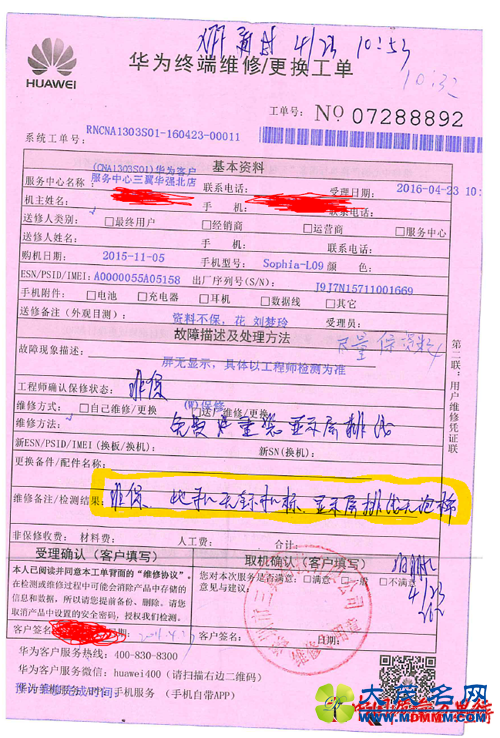 4/23 10:53
HUAWEI
华为终端维修/更换工单
10:32
工单号: NO 07288892
系统工单号: RNCNA1303S01-160423-00011
基本资料
(CNA1303S01)华为客户
服务中心名称: 服务中心三翼华强北店 联系电话: 受理日期: 2016-04-23 10:
机主姓名: 手 机: 联系电话:
送修人类别: □最终用户 □经销商 □运营商 □服务中心
送修人姓名: 手 机: 联系电话:
购机日期: 2015-11-05 手机型号: Sophia-L09 颜 色:
ESN/PSID/IMEI: A0000055A05158 出厂序列号(S/N): J9J7N15711001669
手机附件: □电池 □充电器 □耳机 □数据线 □其它
送修备注（外观目测）: 资料不保；花 刘梦玲 受理员:
故障描述及处理方法
尽量保资料
故障现象描述: 屏无显示，具体以工程师检测为准
工程师确认保修状态: 非保
维修方式: □自己维修/更换 (W)保修 □送厂维修/更换
维修方法: 免费 重装显示屏排线
新ESN/PSID/IMEI (换板/换机): 新SN(换机):
更换备件/配件名称:
维修备注/检测结果: 非保、此手机无 、显示屏排线无
非保修收费: 材料费: 人工费: 合计:
受理确认（客户填写）
本人已阅读并同意本工单背面的“维修协议”。
在检测或维修过程中可能会消除产品中存储的
信息和数据，所以请您提前备份、删除。请您
取消产品中设置的安全密码，授权我们检测。
客户签名:
取机确认（客户填写）
您对本次服务是否满意: □满意 □一般 □不满意
意见与建议:
4/23
客户签名: 日期:
维修专用章
第二联: 用户维修凭证联
华为客户服务热线: 400-830-8300
华为客户服务微信: huawei400 (请扫描右边二维码)
华为 服务: 手机服务 (手机自带APP)
预计维修完成时间:
大麦名网
WWW.MDMMM.COM